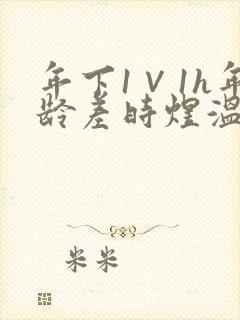 年下1V1h年
龄差时煜温
米米